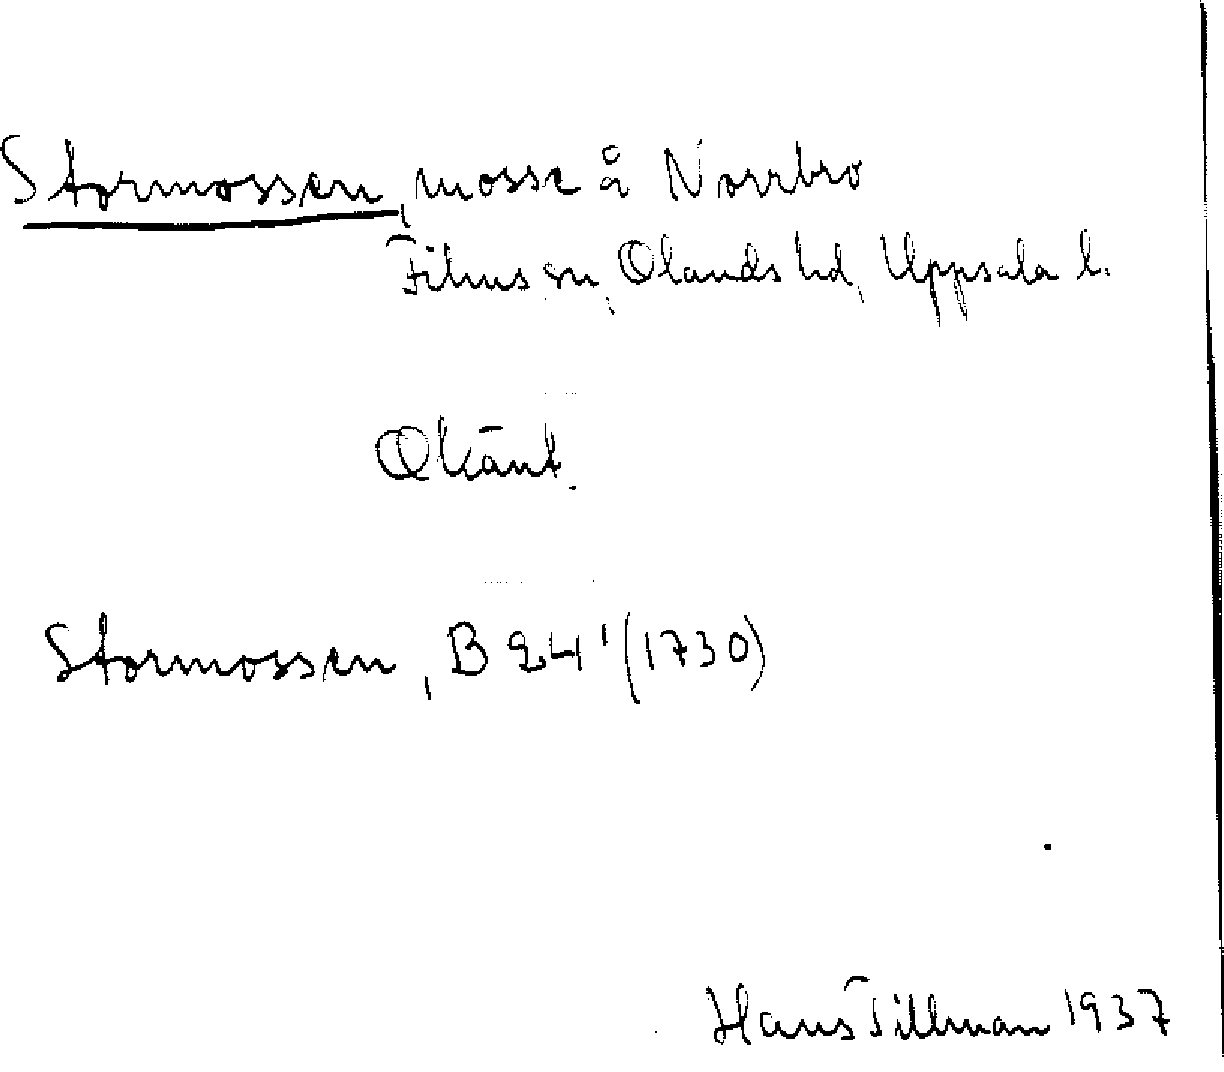 Stormossen, mosse å Norrbro
Films sn, Olands hd, Uppsala l.
Okänt.
Stormossen, B 24' (1730)
Hans Tillman 1937